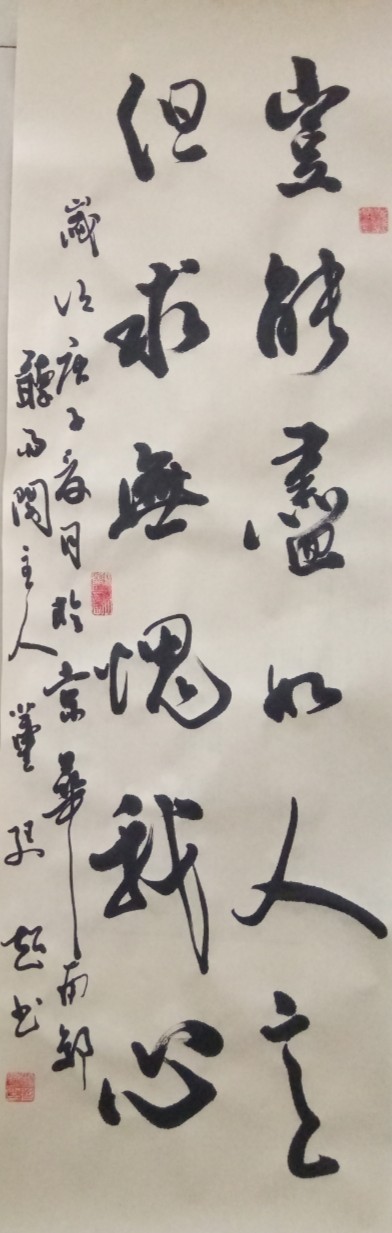 豈能盡如人意
但求無愧我心
歲次庚子夏月於京華南
聽雨閣主人 超書